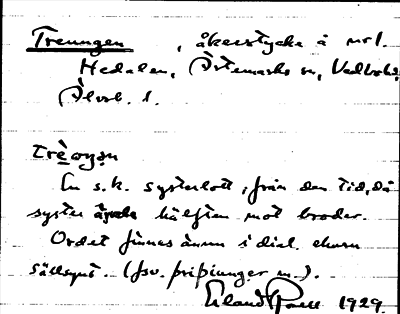 Treungen , åkerstycke å nr 1.
Hedalen, Ärtemarks sn, Vedbo hd,
Älvsb. l.
trèoŋən
En s.k. systerlott, från den tid, då
syster ägde hälften mot broder.
Ordet finnes ännu i dial. ehuru
sällsynt. (fsv. þriþiunger m.).
Erland Rosell 1929